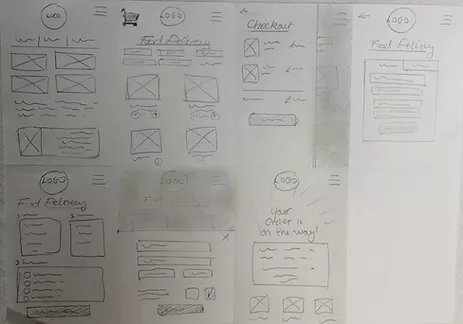 LOGO
LOGO
Food Delivery
Checkout
LOGO
Food Delivery
LOGO
Food Delivery
LOGO
LOGO
Your
Order is
on the way!